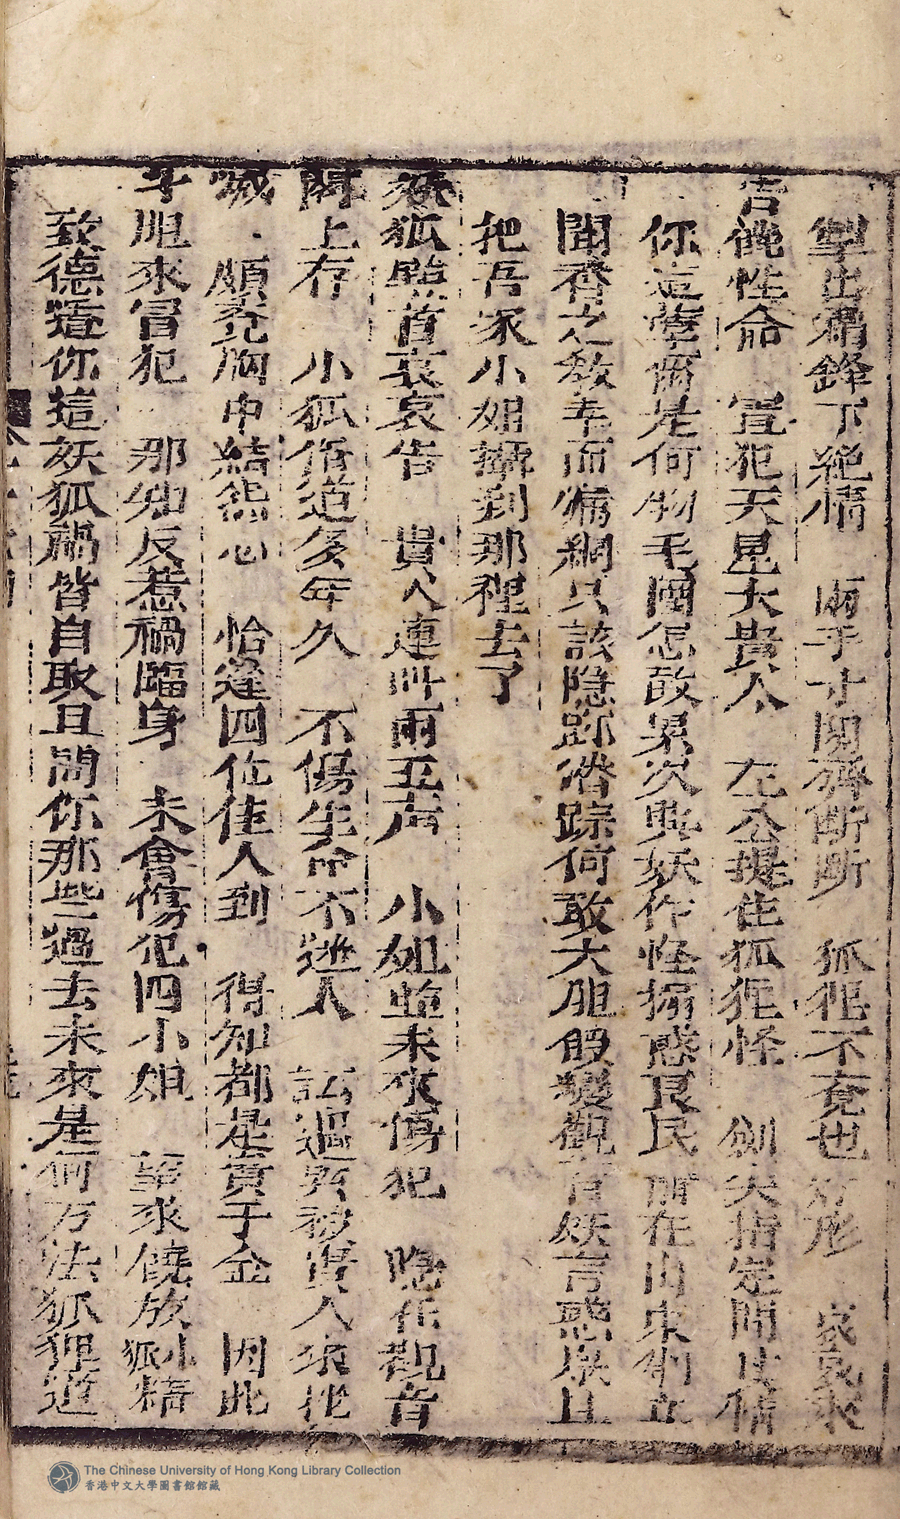 掣出霜鋒下絕情　兩手寸関齊斫斷　狐狸不竟也　形　哀哀求
告饒性命　冒犯天星大貴人　左公捉住狐狸怪　劍尖指定問　情
你這孽畜是何物毛團怎敢累次興妖作怪搧惑良民前在山東
聞香之教幸而漏網只該隱跡潛踪何敢大胆假變觀音妖言惑衆且
把吾家小姐攝到那裡去了
妖狐 首哀哀告　貴人連叫兩五声　小姐並未來傷犯　隐在觀音
閣上存　小狐修道多年久　不傷生命不迷人　被貴人
喊　頗 胸中結怨心　恰逢四位佳人到　得知都是貴千金　因此
胆來冒犯　那知反惹禍臨身　未曾傷犯四小姐　望求饒放小狐精
致德道你這妖狐禍皆自取且問你那些過去未來是何方法狐狸道
The Chinese University of Hong Kong Library Collection
香港中文大學圖書館館藏